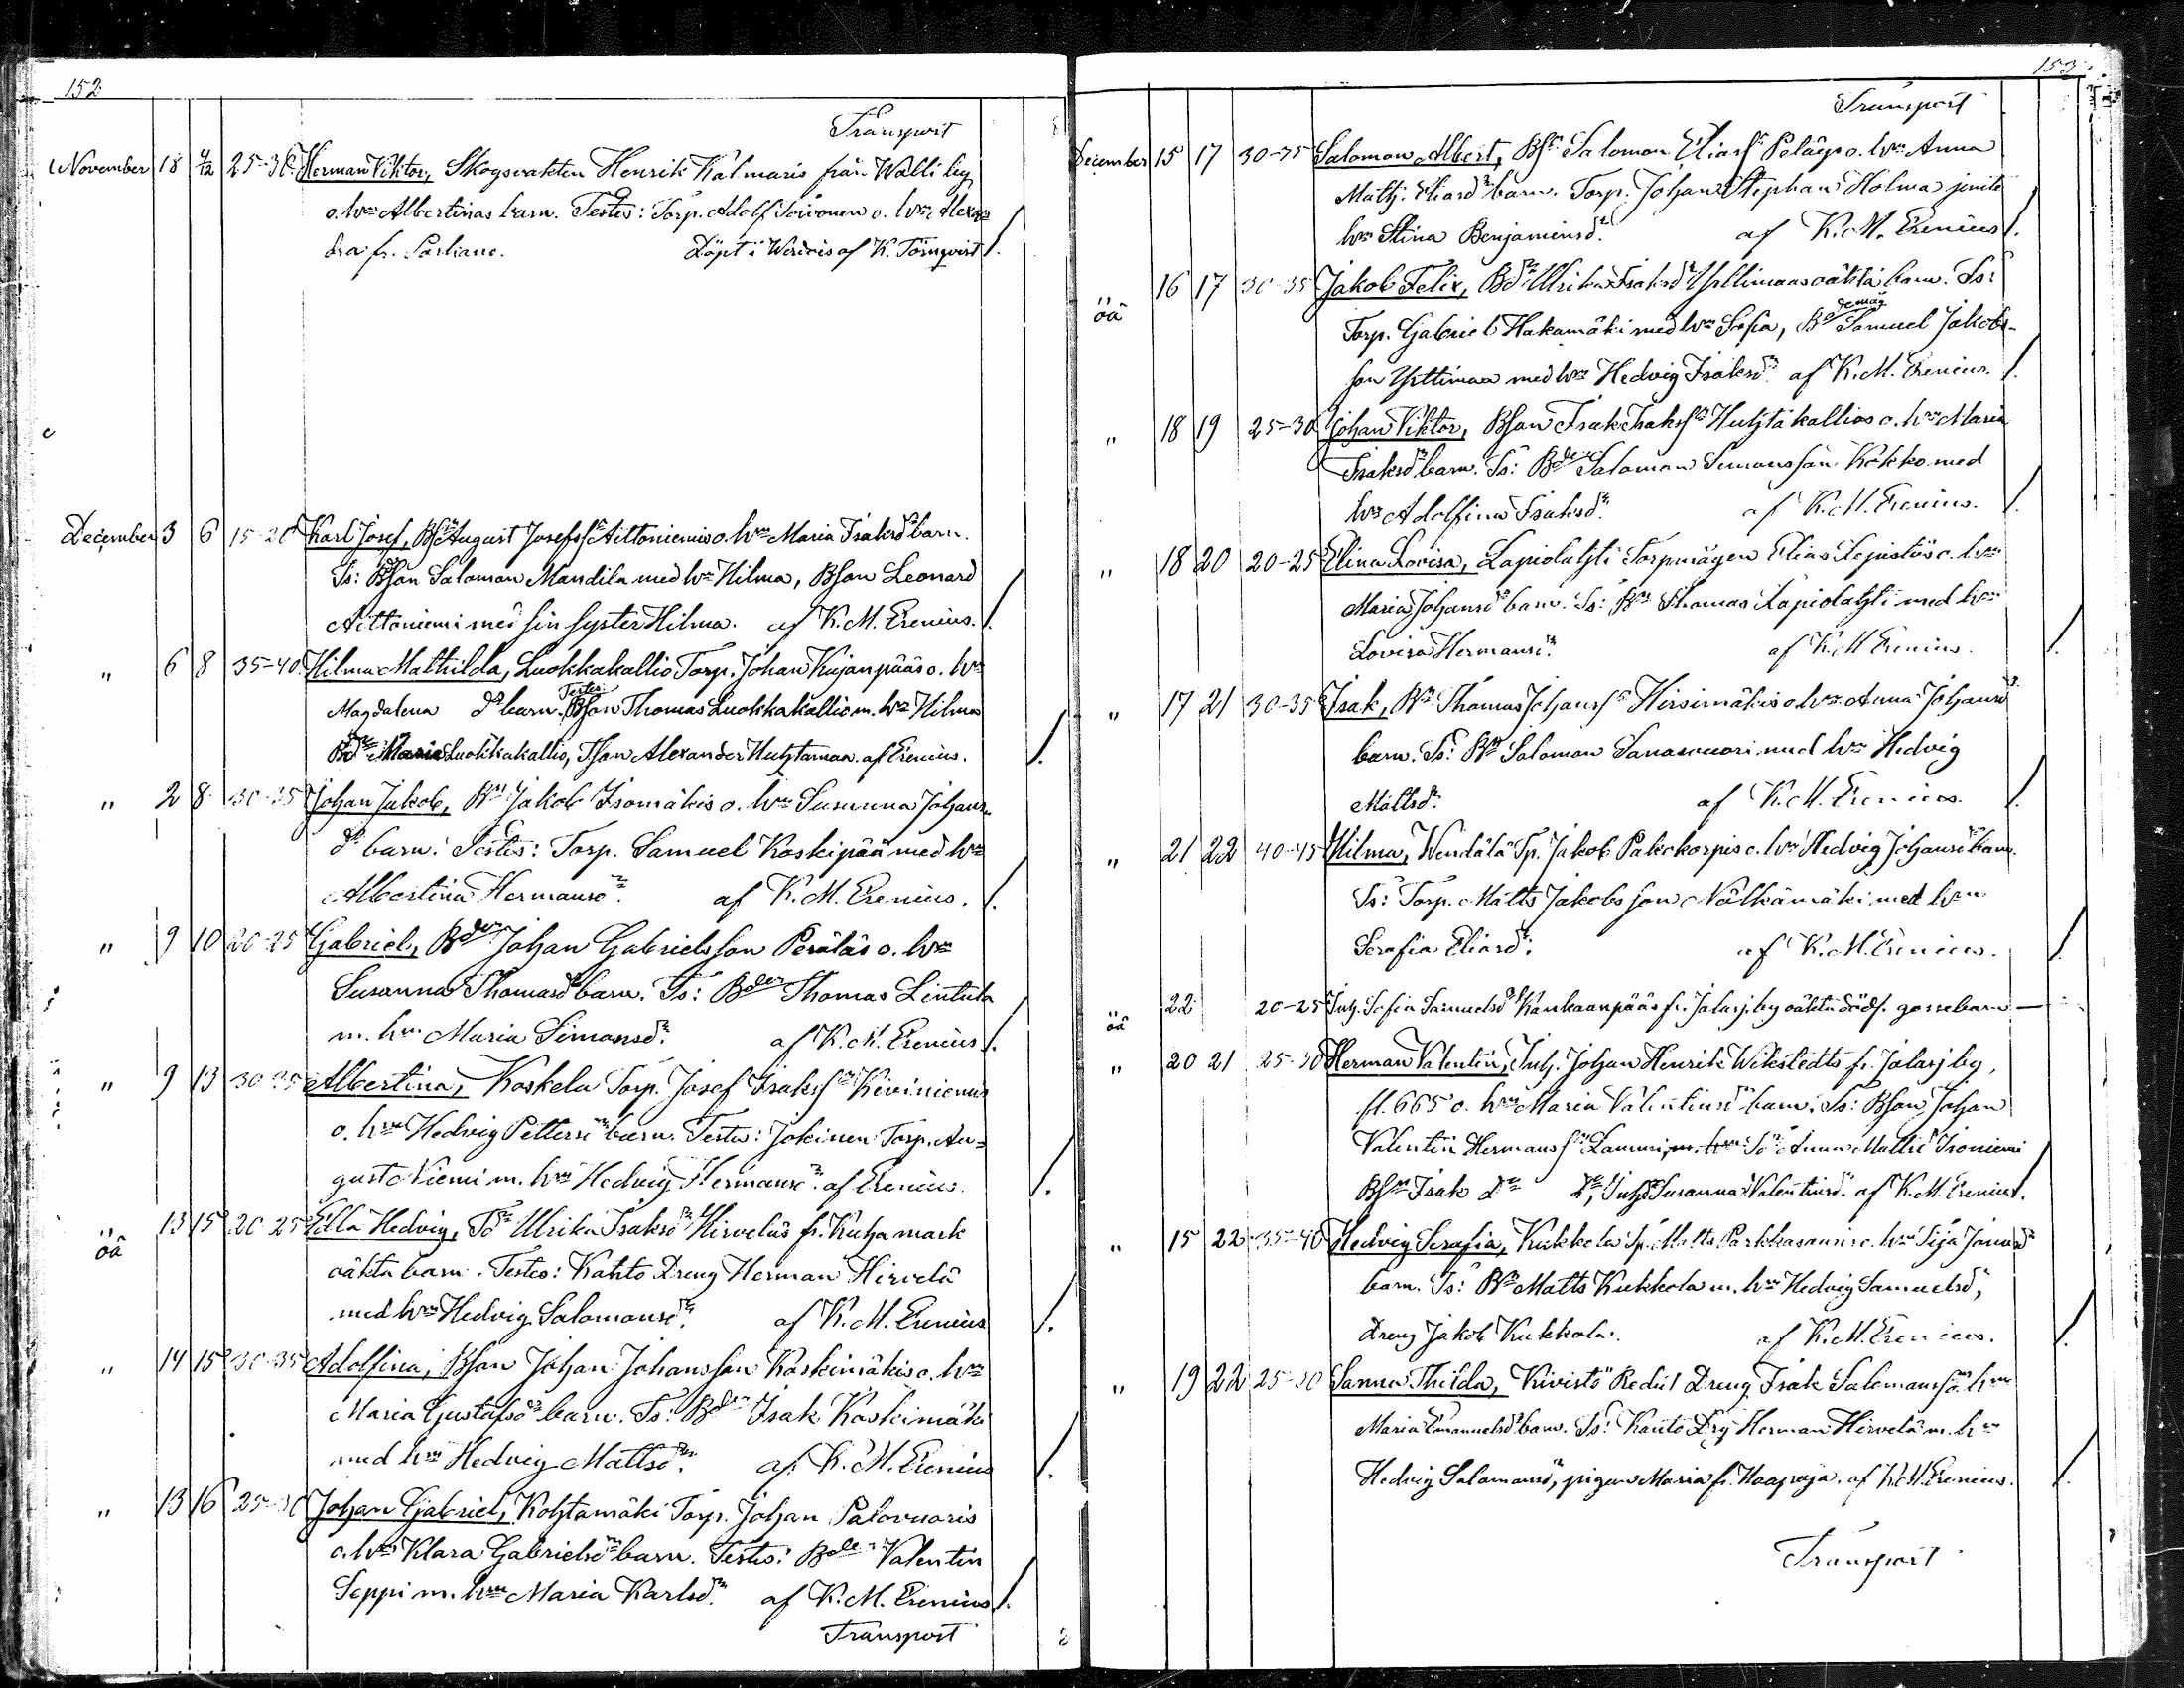 152
Transport
November 18 4/12 25-30 Herman Viktor, Skogsvakten Henrik Kalmaris från Walli by
o. hⁿ Albertinas barn. Testes: Torp. Adolf Soivonen o. hⁿ Alexan
dra fr. Döpt i Werdois af K. Törnqvist
December 3 6 15-20 Karl Josef, Bsⁿ August Josefsⁿ Aittoniemis o. hⁿ Maria Isaksdʳ barn.
Ts: Bson Salomon Mandila med hⁿ Hilma, Bson Leonard
Aittoniemi med sin syster Hilma. af K. M. Erenius.
" 6 8 35-40 Hilma Mathilda, Luokkakallio Torp. Johan Kujanpääs o. hⁿ
Magdalena dʳ barn. Testes Bson Thomas Luokkakallio m. hⁿ Hilma
Maria Luokkakallio, Tson Alexander Huhtamaa. af Erenius.
" 2 8 30-35 Johan Jakob, Bⁿ Jakob Isomäkis o. hⁿ Susanna Johans
dʳ barn. Testes: Torp. Samuel Koskipää med hⁿ
Albertina Hermansdʳ. af K. M. Erenius.
" 9 10 20-25 Gabriel, Bdeⁿ Johan Gabrielsson Peräläs o. hⁿ
Susanna Thomasdʳ barn. Ts: Bden Thomas Lintula
m. hⁿ Maria Simonsdʳ. af K. M. Erenius
" 9 13 30-35 Albertina, Koskela Torp. Josef Isaksⁿ Kiviniemis
o. hⁿ Hedvig Pettersdʳ barn. Testes: Jokinen Torp. Au=
gust Niemi m. hⁿ Hedvig Hermansdʳ. af Erenius.
" oä 13 15 20-25 Hedvig, Tdʳ Ulrika Isaksdʳ Hirveläs fr. Kuha mark
oäkta barn. Testes: Kahto Dreng Herman Hirvelä
med hⁿ Hedvig Salomonsdʳ. af K. M. Erenius
" 14 15 30-35 Adolfina, Bson Johan Johansson Koskimäkis o. hⁿ
Maria Gustafsdʳ barn. Ts: Bdeⁿ Isak Koskimäki
med hⁿ Hedvig Mattsdʳ. af K. M. Erenius
" 13 16 25-30 Johan Gabriel, Kohtamäki Torp. Johan Palovuoris
o. hⁿ Klara Gabrielsdʳ barn. Testes: Bdeⁿ Valentin
Seppi m. hⁿ Maria Karlsdʳ. af K. M. Erenius
Transport
153
Transport
December 15 17 30-35 Salomon Albert, Bsⁿ Salomon Eliasⁿ o. hⁿ Anna
Matts. Eliasdʳ barn. Torp. Johan Stephan Holma
hⁿ Stina Benjaminsdʳ. af K. M. Erenius.
" oä 16 17 30-35 Jakob Felix, Bdʳ Ulrika Isaksdʳ Ylittimaas oäkta barn. Ts:
Torp. Gabriel Hakamäki med hⁿ Sofia, Bdemåg Samuel Jakobs-
son Ylittimaa med hⁿ Hedvig Isaksdʳ. af K. M. Erenius.
" 18 19 25-30 Johan Viktor, Bson Isak Isaksⁿ Huhtakallios o. hⁿ Maria
Isaksdʳ barn. Ts: Bden Salomon Simonsson Kokko med
hⁿ Adolfina Isaksdʳ. af K. M. Erenius.
" 18 20 20-25 Elina Lovisa, Lapiolahti Torpmågen Elias Lepistös o. hⁿ
Maria Johansdʳ barn. Ts: Bⁿ Thomas Lapiolahti med hⁿ
Lovisa Hermansdʳ. af K. M. Erenius.
" 17 21 30-35 Isak, Bⁿ Thomas Johansⁿ Hirsimäkis o. hⁿ Anna Johansdʳ
barn. Ts: Bⁿ Salomon Sanasvuori med hⁿ Hedvig
Mattsdʳ. af K. M. Erenius.
" 21 22 40-45 Hilma, Wendälä Tp. Jakob Pakokorpis o. hⁿ Hedvig Johansdʳ barn.
Ts: Torp. Matts Jakobsson Nälkämäki med hⁿ
Serafia Eliasdʳ. af K. M. Erenius.
" oä 22 20-25 Inh. Sofia Samuelsdʳ Kankaanpääs fr. Jalasj. by oäkta dödf. gossebarn
" 20 21 25-30 Herman Valentin, Inh. Johan Henrik Wikstedts fr. Jalasj. by,
fl. 665 o. hⁿ Maria Valentinsdʳ barn. Ts: Bson Johan
Valentin Hermansⁿ Lammi, Anna Mattsdʳ Isoniemi
Bsⁿ Isak Dⁿ Dⁿ, Inhdʳ Susanna Valentinsdʳ. af K. M. Erenius.
" 15 22 35-40 Hedvig Serafia, Kukkola Tp. Matts o. hⁿ
barn. Ts: Bⁿ Matts Kukkola m. hⁿ Hedvig Samuelsdʳ,
Dreng Jakob Kukkola. af K. M. Erenius.
" 19 22 25-30 Sanna Thilda, Kivistö Dreng Isak Salomonss o. hⁿ
Maria Emanuelsdʳ barn. Ts: Dreng Herman Hirvelä m. hⁿ
Hedvig Salomonsdʳ, pigan Maria fr. Haapoja. af K. M. Erenius.
Transport